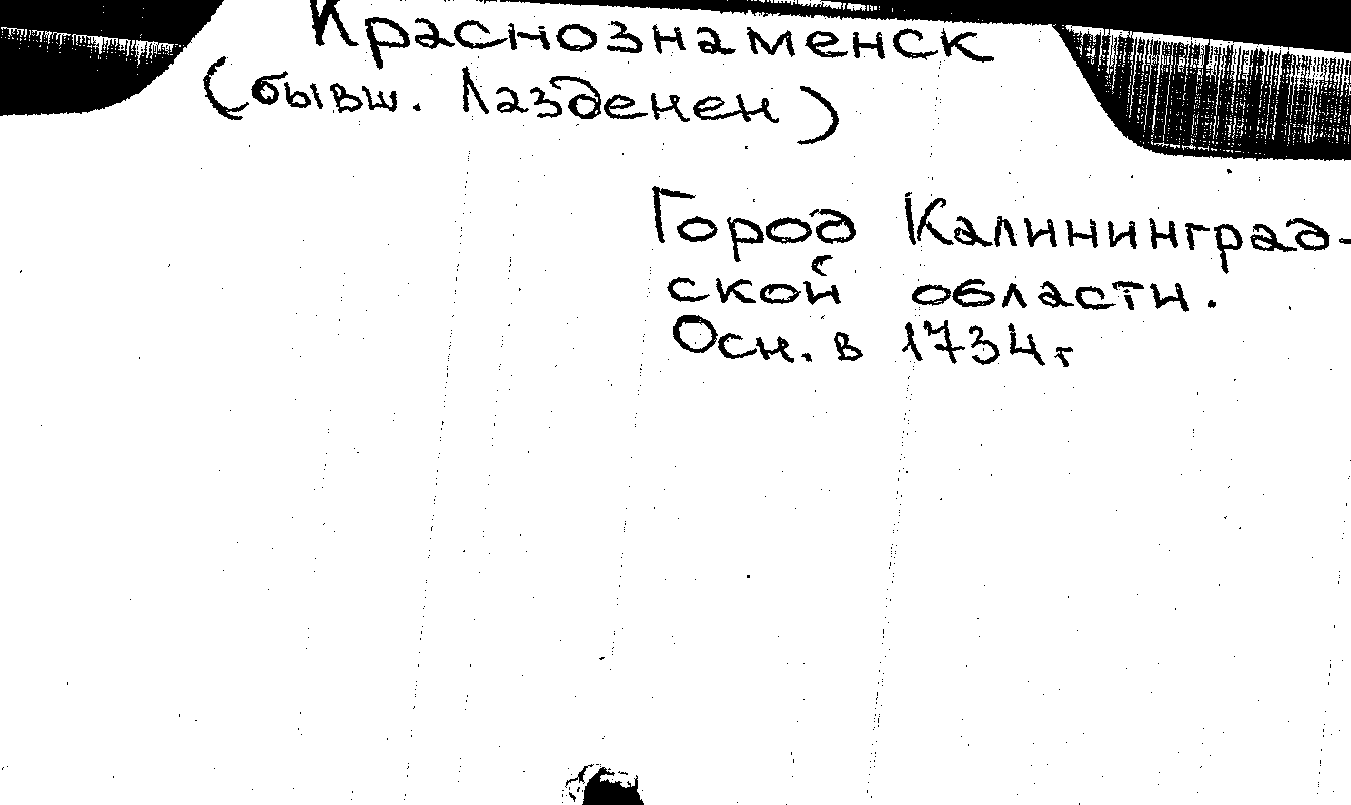 Краснознаменск
(бывш. Лазденен)
Город Калининград-
ской области.
Осн. в 1734 г